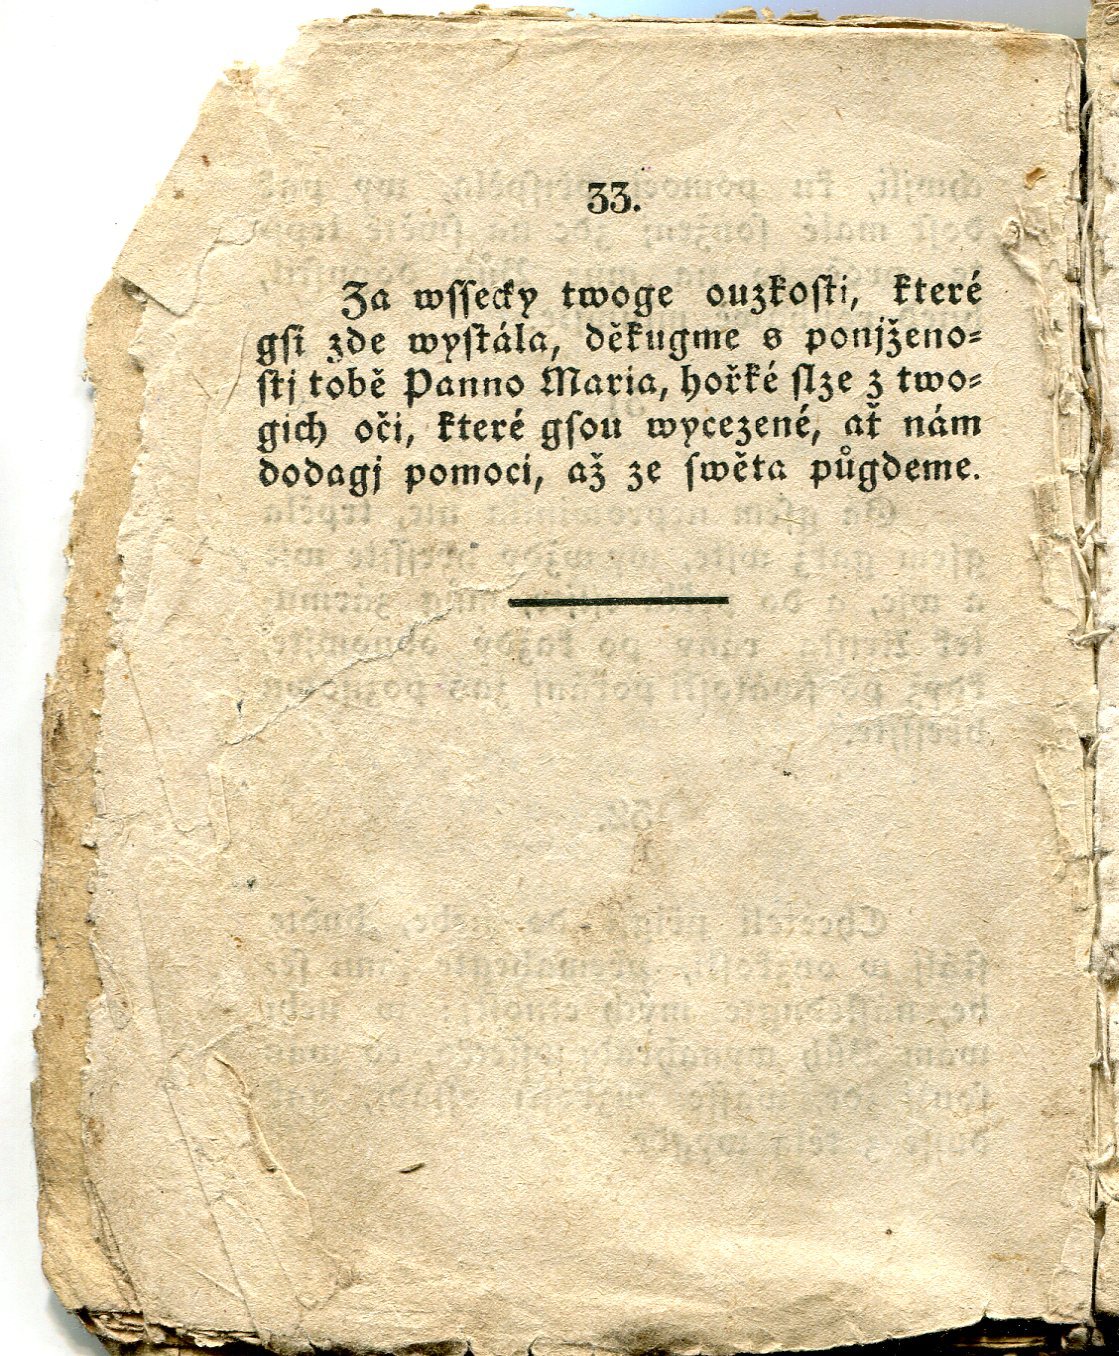 33.
Za wſſecky twoge ouzkoſti, které
gſi zde wyſtála, děkugme s ponjženo=
ſtj tobě Panno Maria, hořké ſlze z two=
gich oči, které gſou wycezené, ať nám
dodagj pomoci, až ze ſwěta půgdeme.